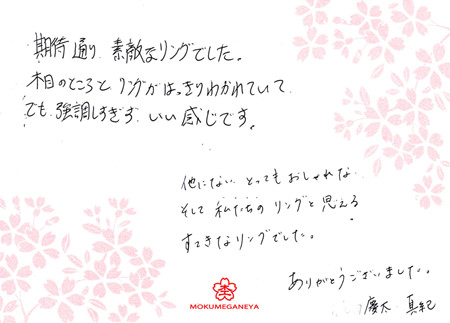 期待通り、素敵なリングでした。
木目のところと リングが はっきりわかれていて
でも 強調しすぎず いい感じです。
他にない とっても おしゃれな
そして 私たちの リングと 思える
すてきなリングでした。
ありがとうございました。
慶太 真紀
MOKUMEGANEYA